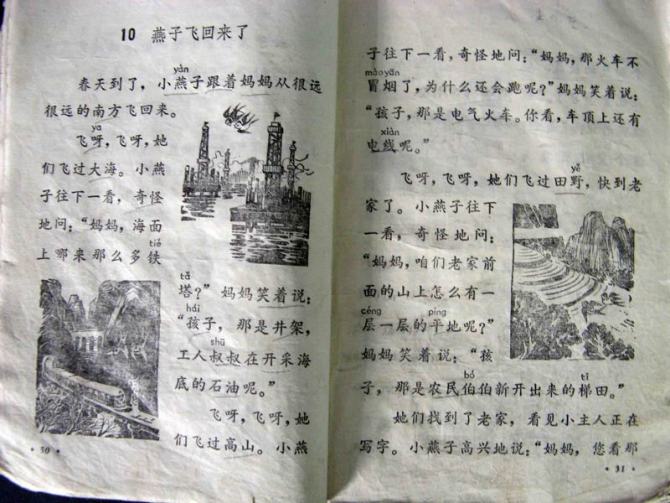 10 燕子飞回来了
yàn
春天到了，小燕子跟着妈妈从很远
很远的南方飞回来。
ya
飞呀，飞呀，她
们飞过大海。小燕
子往下一看，奇怪
地问：“妈妈，海面
tiě
上哪来那么多铁
tǎ
塔？”妈妈笑着说：
hái
“孩子，那是井架，
shū
工人叔叔在开采海
底的石油呢。”
飞呀，飞呀，她
们飞过高山。小燕
·30·
子往下一看，奇怪地问：“妈妈，那火车不
mào yān
冒烟了，为什么还会跑呢？”妈妈笑着说：
“孩子，那是电气火车。你看，车顶上还有
xiàn
电线呢。”
yě
飞呀，飞呀，她们飞过田野，快到老
家了。小燕子往下
一看，奇怪地问：
“妈妈，咱们老家前
面的山上怎么有一
céng píng
层一层的平地呢？”
妈妈笑着说：“孩
bó tī
子，那是农民伯伯新开出来的梯田。”
她们找到了老家，看见小主人正在
写字。小燕子高兴地说：“妈妈，您看那
·31·